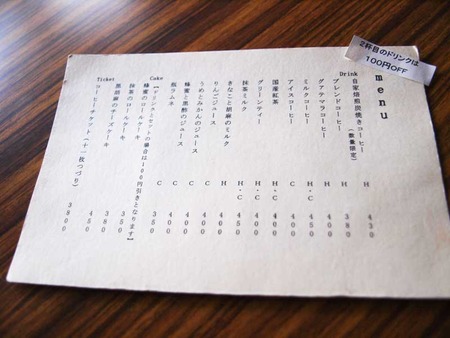 2杯目のドリンクは
100円OFF
menu
Drink
自家焙煎炭焼きコーヒー（数量限定） H 430
ブレンドコーヒー H 380
グァテマラコーヒー H 400
ミルクコーヒー H・C 450
アイスコーヒー C 400
国産紅茶 H・C 400
グリーンティー H・C 400
抹茶ミルク H・C 450
きなこと胡麻のミルク H・C 450
りんごジュース C 400
うめとみかんのジュース C 400
蜂蜜と黒酢のジュース C 400
瓶ラムネ C 300
Cake【ドリンクとセットの場合は100円引きとなります】
蜂蜜のロールケーキ 350
抹茶のロールケーキ 380
黒胡麻のチーズケーキ 450
Ticket
コーヒーチケット（十一枚つづり） 3800